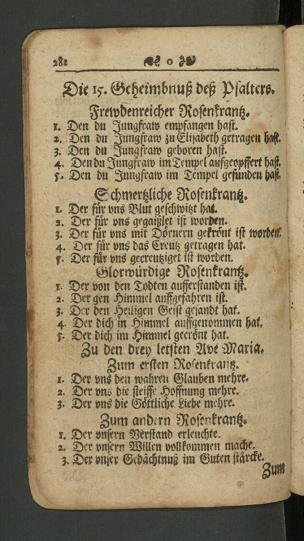 282 o
Die 15. Geheimbnuß deß Psalters.
Frewdenreicher Rosenkrantz.
1. Den du Jungfraw empfangen hast.
2. Den du Jungfraw zu Elisabeth getragen hast.
3. Den du Jungfraw geboren hast.
4. Den du Jungfraw im Tempel auffgeopffert hast.
5. Den du Jungfraw im Tempel gefunden hast.
Schmertzliche Rosenkrantz.
1. Der für vns Blut geschwitzt hat.
2. Der für vns gegaißlet ist worden.
3. Der für vns mit Dörnern gekrönt ist worden.
4. Der für vns das Creutz getragen hat.
5. Der für vns gecreutziget ist worden.
Glorwürdige Rosenkrantz.
1. Der von den Todten aufferstanden ist.
2. Der gen Himmel auffgefahren ist.
3. Der den Heiligen Geist gesandt hat.
4. Der dich in Himmel auffgenommen hat.
5. Der dich im Himmel gecrönt hat.
Zu den drey letsten Ave Maria.
Zum ersten Rosenkrantz.
1. Der vns den wahren Glauben mehre.
2. Der vns die steiffe Hoffnung mehre.
3. Der vns die Göttliche Liebe mehre.
Zum andern Rosenkrantz.
1. Der vnsern Verstand erleuchte.
2. Der vnsern Willen vollkommen mache.
3. Der vnser Gedächtnuß im Guten stärcke.
Zum